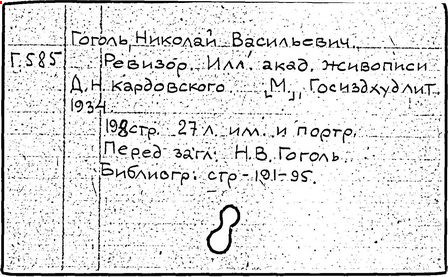 Гоголь, Николай Васильевич.
Г.585 Ревизор. Илл. акад. живописи
Д.Н. Кардовского. [М.], Госиздхудлит.
1934
198стр. 27 л. илл. и портр.
Перед загл: Н.В. Гоголь.
Библиогр: стр - 191-95.